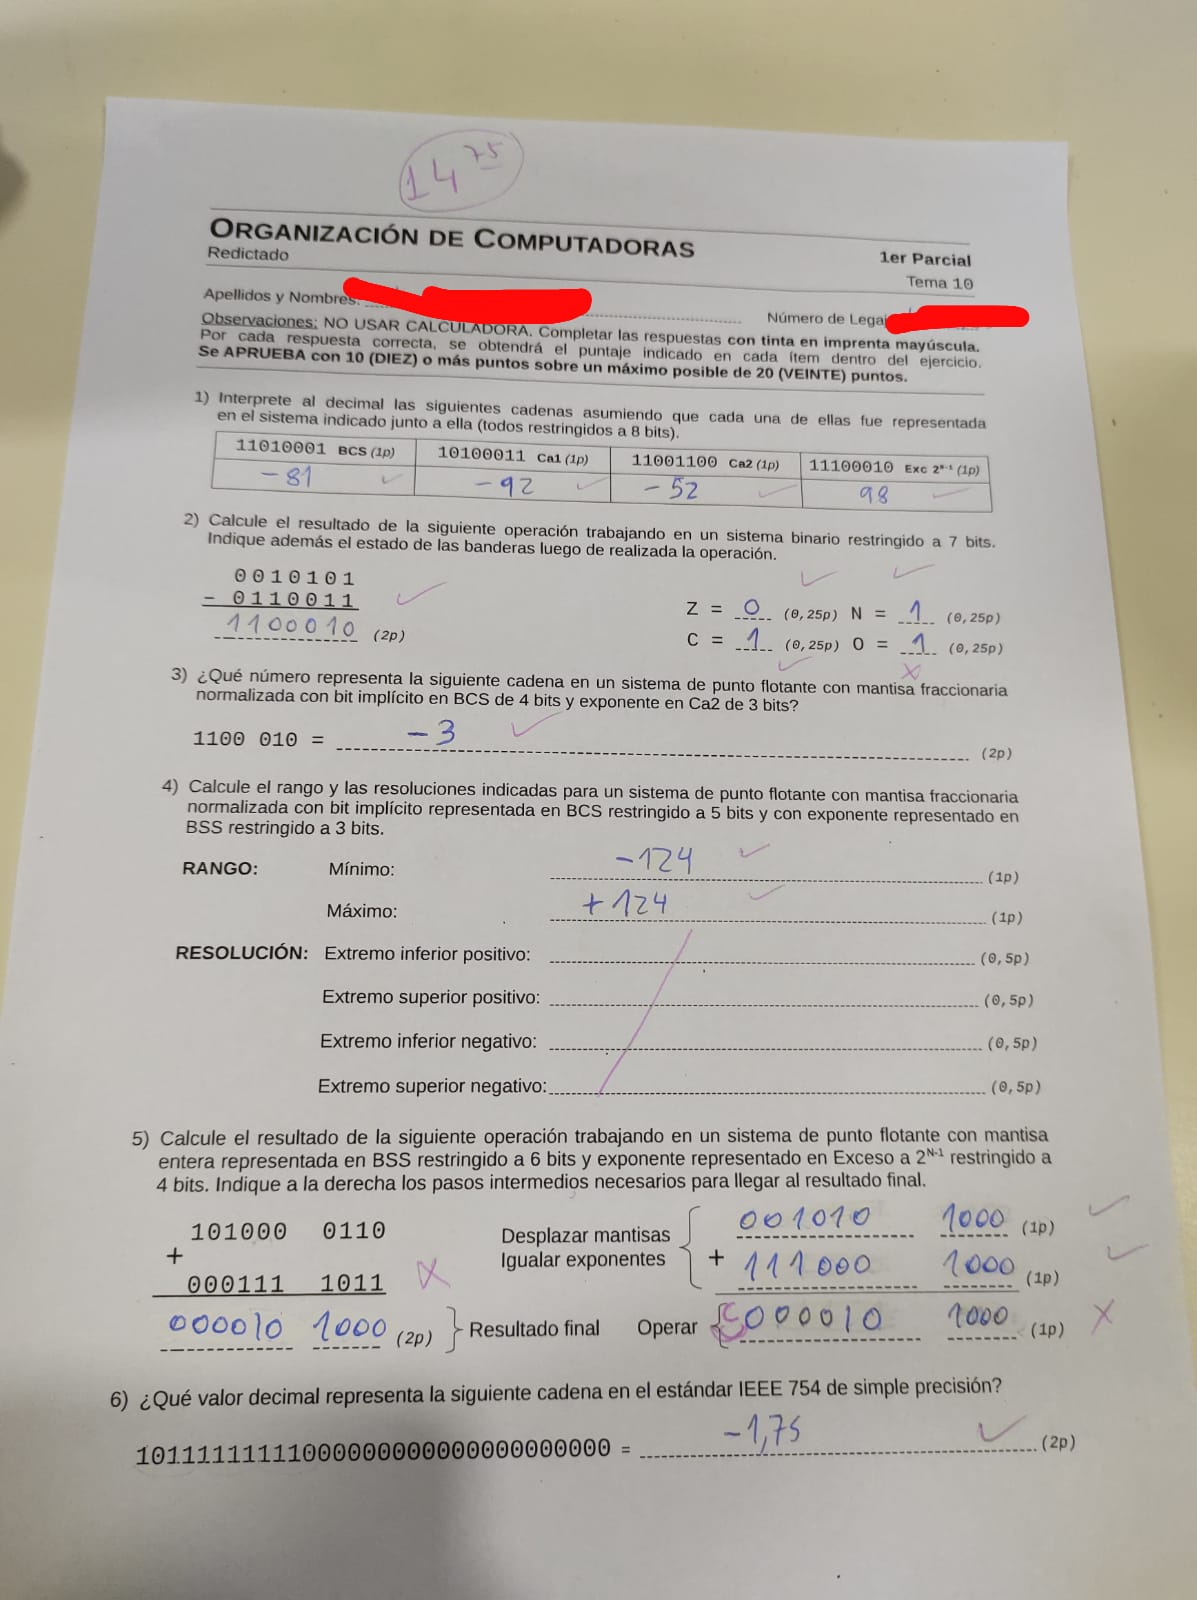 14 75
ORGANIZACIÓN DE COMPUTADORAS
Redictado
1er Parcial
Tema 10
Apellidos y Nombres:
Número de Legaj
Observaciones: NO USAR CALCULADORA. Completar las respuestas con tinta en imprenta mayúscula.
Por cada respuesta correcta, se obtendrá el puntaje indicado en cada ítem dentro del ejercicio.
Se APRUEBA con 10 (DIEZ) o más puntos sobre un máximo posible de 20 (VEINTE) puntos.
1) Interprete al decimal las siguientes cadenas asumiendo que cada una de ellas fue representada
en el sistema indicado junto a ella (todos restringidos a 8 bits).
11010001 BCS (1p) 10100011 Ca1 (1p) 11001100 Ca2 (1p) 11100010 Exc 2ᴺ⁻¹ (1p)
-81 -92 -52 98
2) Calcule el resultado de la siguiente operación trabajando en un sistema binario restringido a 7 bits.
Indique además el estado de las banderas luego de realizada la operación.
0010101
- 0110011
1100010 (2p)
Z = 0 (0,25p) N = 1 (0,25p)
C = 1 (0,25p) O = 1 (0,25p)
3) ¿Qué número representa la siguiente cadena en un sistema de punto flotante con mantisa fraccionaria
normalizada con bit implícito en BCS de 4 bits y exponente en Ca2 de 3 bits?
1100 010 = -3 (2p)
4) Calcule el rango y las resoluciones indicadas para un sistema de punto flotante con mantisa fraccionaria
normalizada con bit implícito representada en BCS restringido a 5 bits y con exponente representado en
BSS restringido a 3 bits.
RANGO: Mínimo: -124 (1p)
Máximo: +124 (1p)
RESOLUCIÓN: Extremo inferior positivo: (0,5p)
Extremo superior positivo: (0,5p)
Extremo inferior negativo: (0,5p)
Extremo superior negativo: (0,5p)
5) Calcule el resultado de la siguiente operación trabajando en un sistema de punto flotante con mantisa
entera representada en BSS restringido a 6 bits y exponente representado en Exceso a 2ᴺ⁻¹ restringido a
4 bits. Indique a la derecha los pasos intermedios necesarios para llegar al resultado final.
101000 0110 Desplazar mantisas 001010 1000 (1p)
+ Igualar exponentes +
000111 1011 111000 1000 (1p)
000010 1000 (2p) Resultado final Operar 000010 1000 (1p)
6) ¿Qué valor decimal representa la siguiente cadena en el estándar IEEE 754 de simple precisión?
10111111111000000000000000000000 = -1,75 (2p)